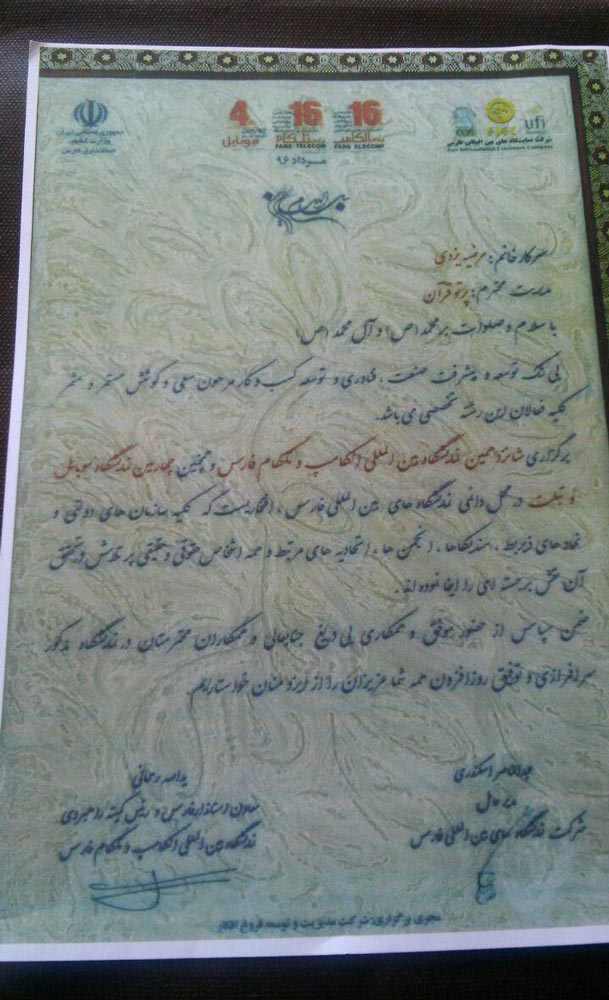 جمهوری اسلامی ایران
وزارت کشور
استانداری فارس
4
موبایل
16
تلکام
FARS TELECOM
16
الکامپ
FARS ELECOMP
مرداد ۹۶
ufi
شرکت نمایشگاه های بین المللی فارس
Fars International Exhibitions Company
سرکار خانم: مرضیه یزدی
مدیریت محترم: پرتو قرآن
با سلام و صلوات بر محمد (ص) و آل محمد (ص)
بی شک توسعه و پیشرفت صنعت ، فناوری و توسعه کسب و کار مرهون سعی و کوشش مستمر و مثمر
کلیه فعالان این رشته تخصصی می باشد.
برگزاری شانزدهمین نمایشگاه بین المللی الکامپ و تلکام فارس و همچنین چهارمین نمایشگاه موبایل
و تبلت در محل دائمی نمایشگاه های بین المللی فارس ، افتخاریست که کلیه سازمان های دولتی و
نهادهای ذیربط ، سندیکاها ، انجمن ها ، اتحادیه های مرتبط و همه اشخاص حقوقی و حقیقی پر تلاش در تحقق
آن نقش برجسته ای را ایفا نموده اند .
ضمن سپاس از حضور موفق و همکاری بی دریغ جنابعالی و همکاران محترمتان در نمایشگاه مذکور
سرافرازی و توفیق روزافزون همه شما عزیزان را از ایزد منان خواستاریم.
یداله رحمانی
معاون استاندار فارس و رئیس کمیته راهبردی
نمایشگاه بین المللی الکامپ و تلکام فارس
عبدالناصر اسکندری
مدیر عامل
شرکت نمایشگاه های بین المللی فارس
مجری برگزاری: شرکت مدیریت و توسعه فروغ افکار